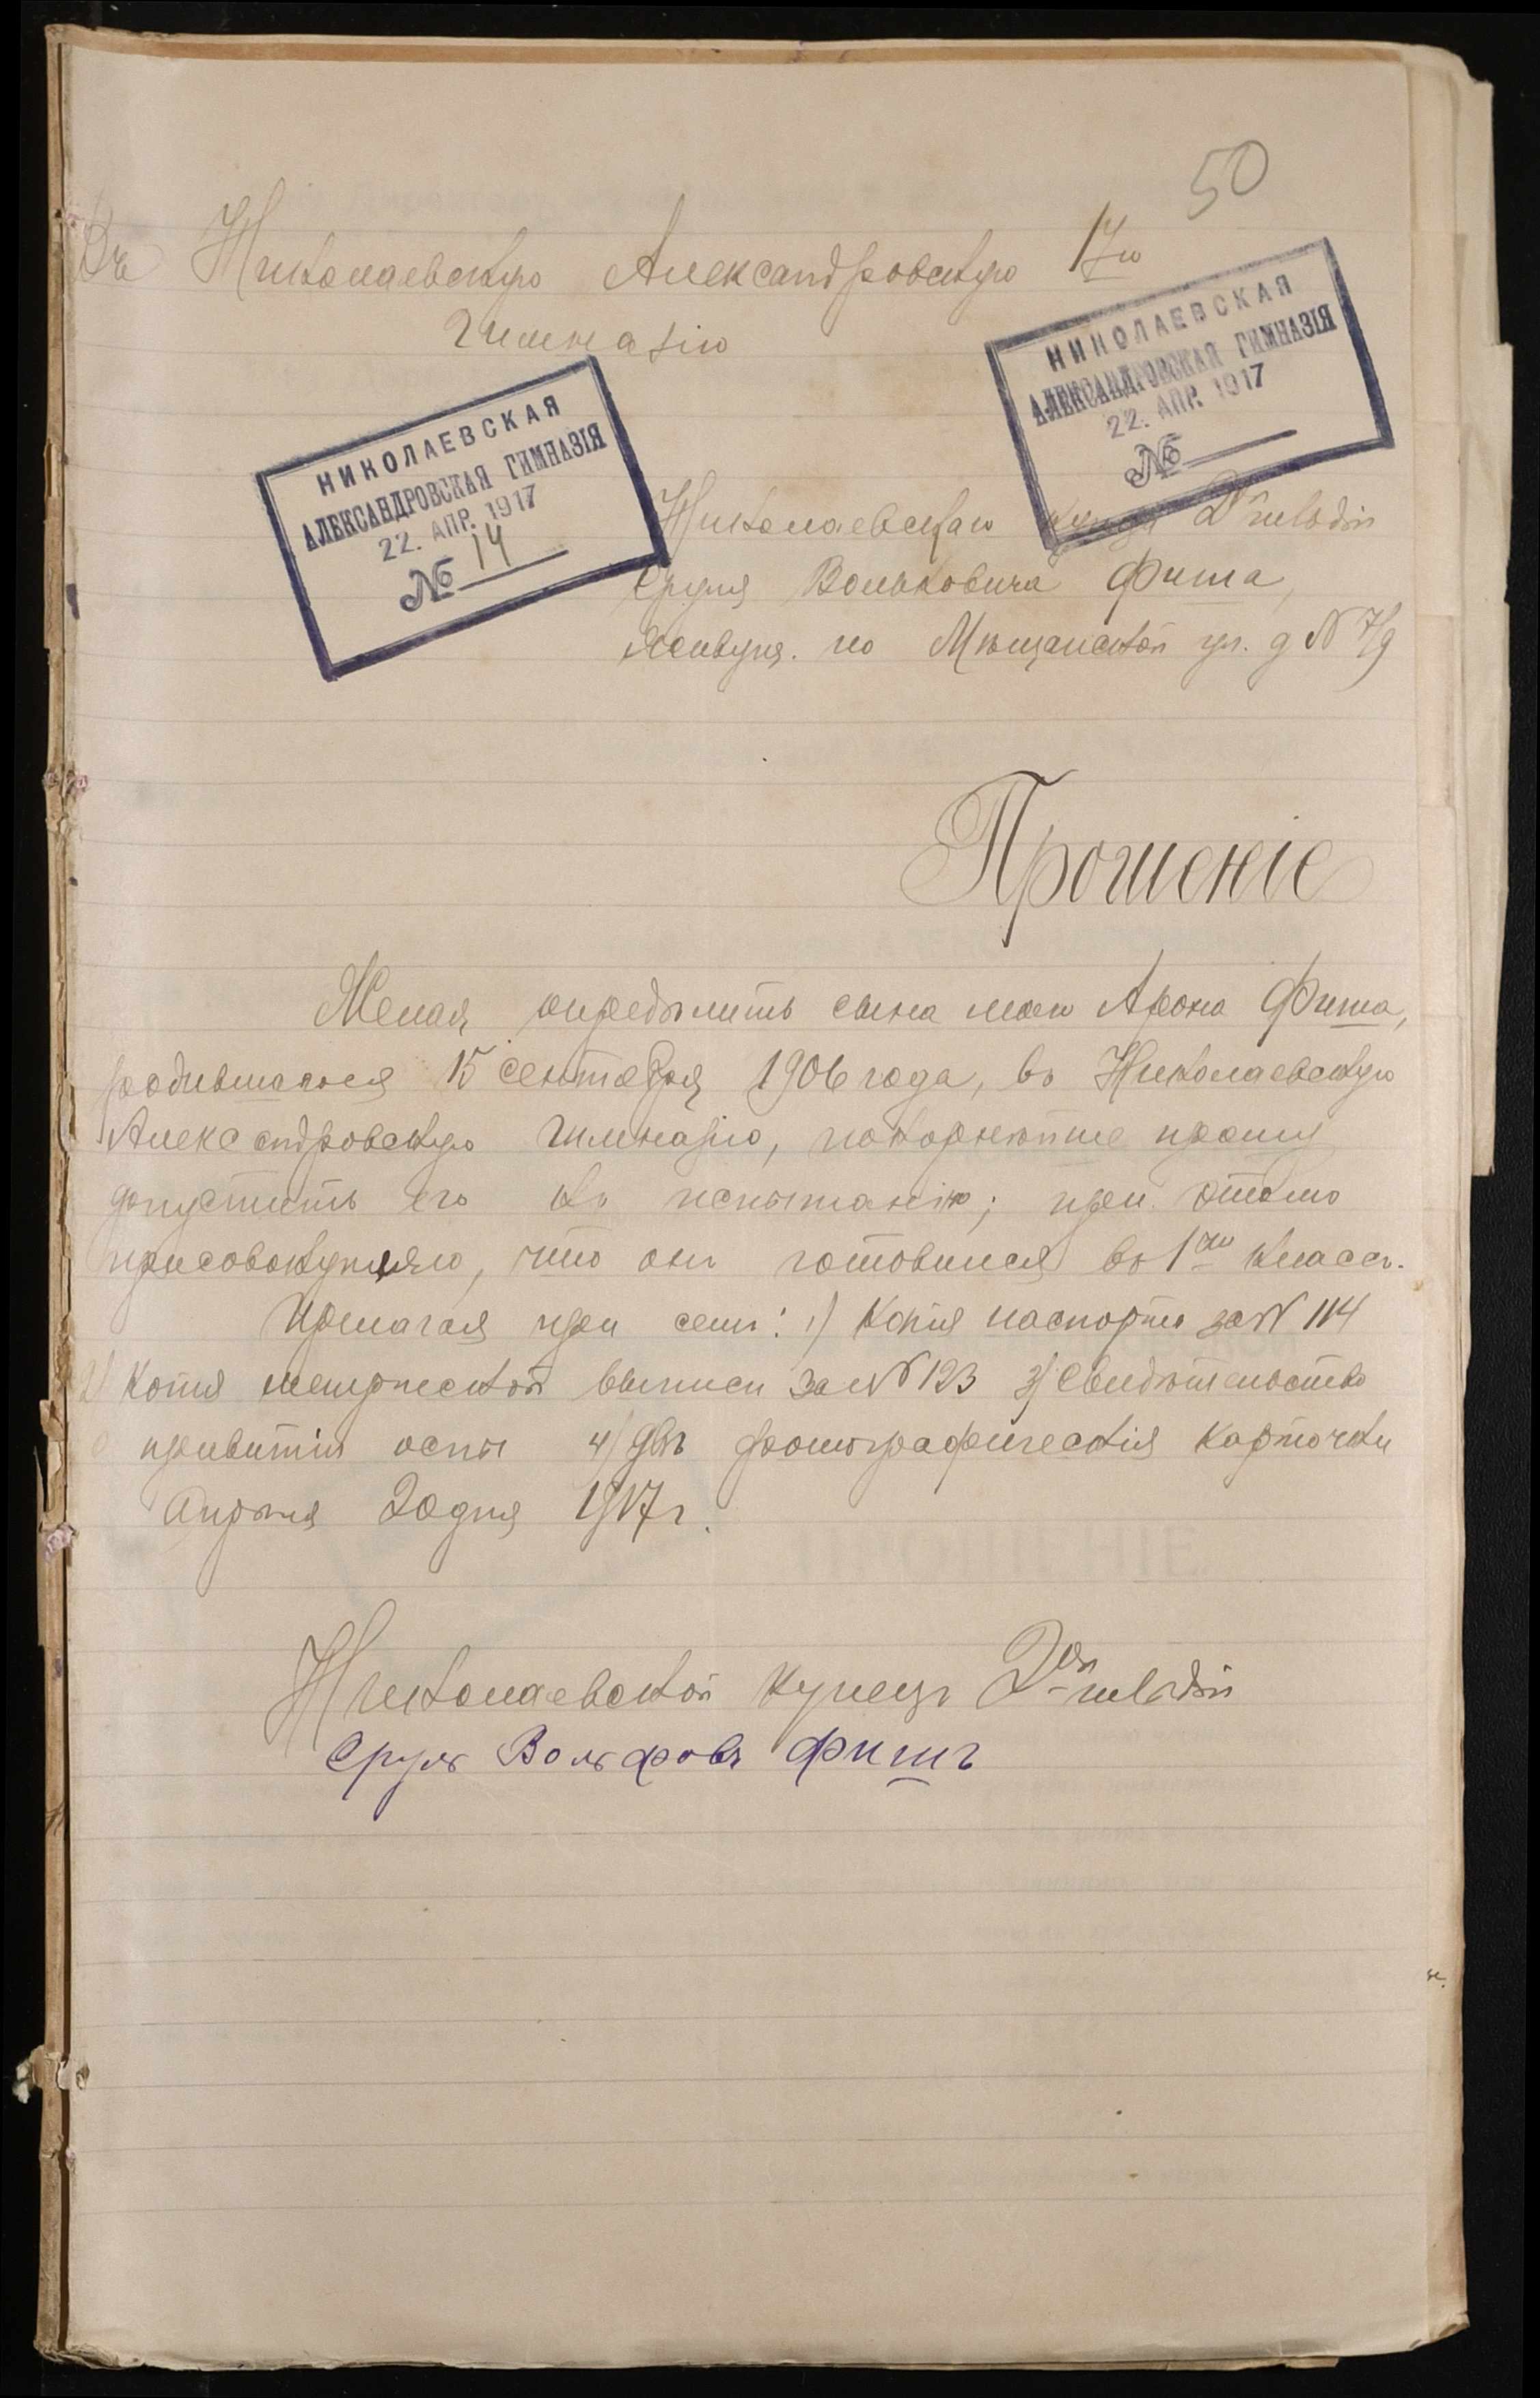 50
Въ Николаевскую Александровскую 1ую
Гимназію
НИКОЛАЕВСКАЯ
АЛЕКСАНДРОВСКАЯ ГИМНАЗІЯ
22. АПР. 1917
№
НИКОЛАЕВСКАЯ
АЛЕКСАНДРОВСКАЯ ГИМНАЗІЯ
22. АПР. 1917
№ 14
Николаевскаго купца 2й гильдіи
Сруля Вольковича Фиша,
Живущ. по Мѣщанской ул. д № 7/9
Прошеніе
Желая опредѣлить сына моего Арона Фиша,
родившагося 15 сентября 1906 года, въ Николаевскую
Александровскую Гимназію, покорнѣйше прошу
допустить его къ испытанію; при этомъ
присовокупляю, что онъ готовился въ 1ый классъ.
Прилагая при семъ: 1) Копія паспорта за № 114
2) Копія метрической выписи за № 123 3) Свидѣтельство
о привитіи оспы 4) двѣ фотографическія карточки
Апрѣля 20 дня 1917 г.
Николаевской купецъ 2ой гильдіи
Сруль Вольфовъ Фишъ